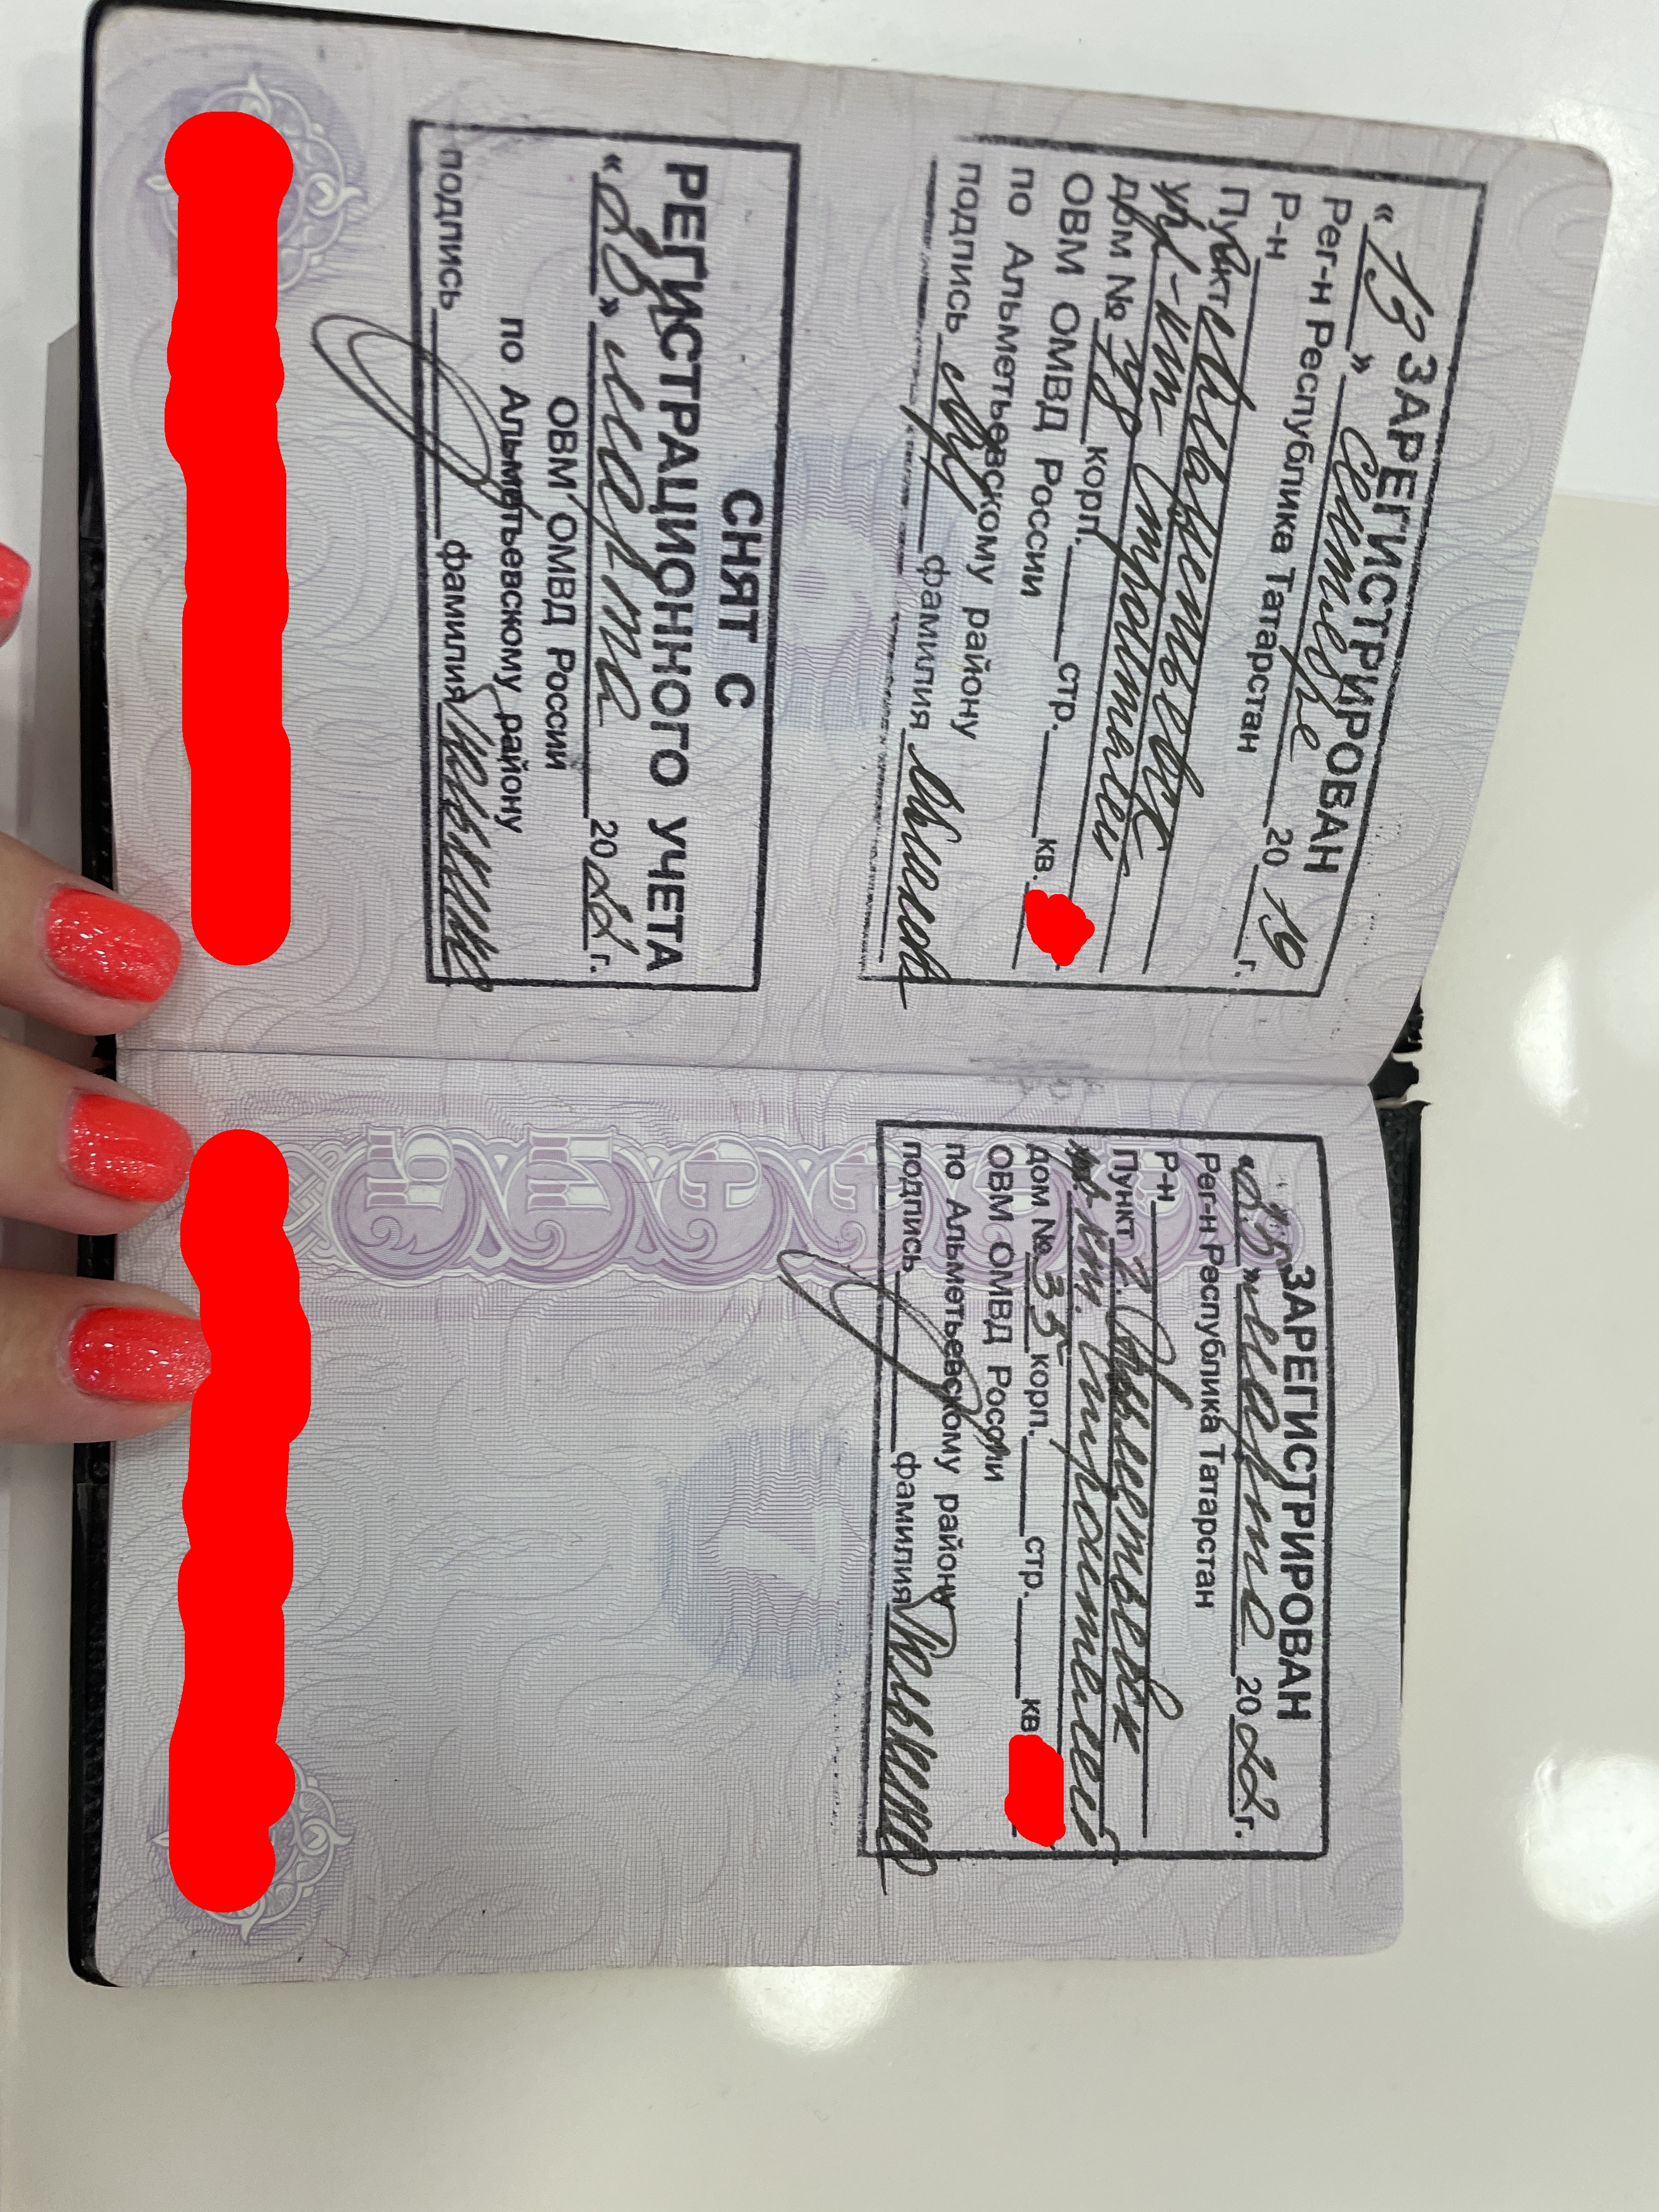 ЗАРЕГИСТРИРОВАН
«13» сентября 2019 г.
Рег-н Республика Татарстан
Р-н
Пункт г. Альметьевск
ул. пр-кт Строителей
дом № корп. стр. кв.
ОВМ ОМВД России
по Альметьевскому району
подпись фамилия
СНЯТ С
РЕГИСТРАЦИОННОГО УЧЕТА
«28» марта 2022 г.
ОВМ ОМВД России
по Альметьевскому району
подпись фамилия
ЗАРЕГИСТРИРОВАН
«28» марта 2022 г.
Рег-н Республика Татарстан
Р-н
Пункт г. Альметьевск
пр-кт. Строителей
дом № 35 корп. стр. кв
ОВМ ОМВД России
по Альметьевскому району
подпись фамилия